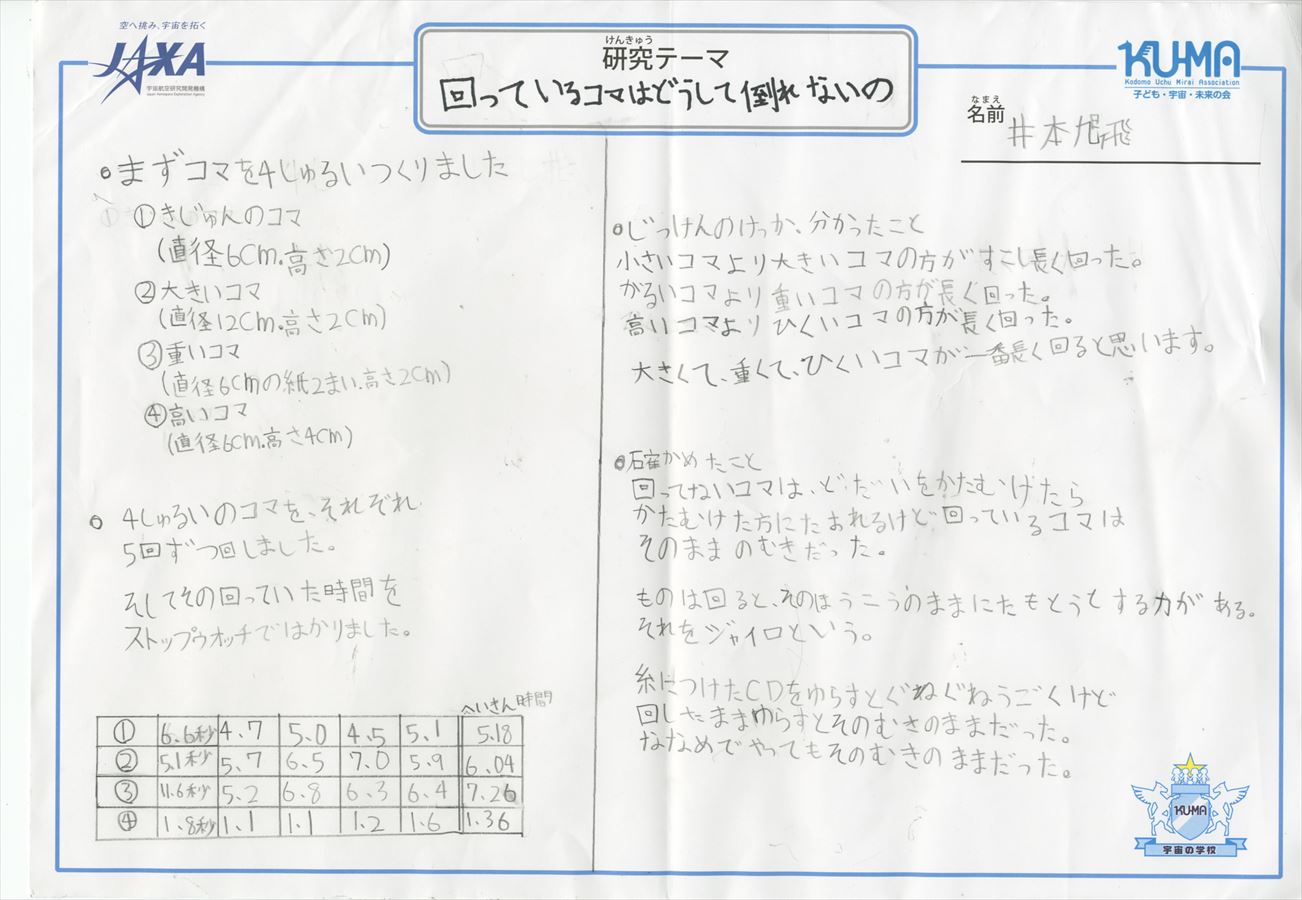 空へ挑み、宇宙を拓く
JAXA
宇宙航空研究開発機構
Japan Aerospace Exploration Agency
けんきゅう
研究テーマ
回っているコマはどうして倒れないの
KU-MA
Kodomo Uchu Mirai Association
子ども・宇宙・未来の会
なまえ
名前
井本旭飛
まずコマを4しゅるいつくりました
①きじゅんのコマ
(直径6Cm.高さ2Cm)
②大きいコマ
(直径12Cm.高さ2Cm)
③重いコマ
(直径6Cmの紙2まい.高さ2Cm)
④高いコマ
(直径6Cm.高さ4Cm)
4しゅるいのコマを、それぞれ
5回ずつ回しました。
そしてその回っていた時間を
ストップウオッチではかりました。
へいきん時間
① 6.6秒 4.7 5.0 4.5 5.1 5.18
② 5.1秒 5.7 6.5 7.0 5.9 6.04
③ 11.6秒 5.2 6.8 6.3 6.4 7.26
④ 1.8秒 1.1 1.1 1.2 1.6 1.36
じっけんのけっか、分かったこと
小さいコマより大きいコマの方がすこし長く回った。
かるいコマより重いコマの方が長く回った。
高いコマよりひくいコマの方が長く回った。
大きくて、重くて、ひくいコマが一番長く回ると思います。
確かめたこと
回ってないコマは、どだいをかたむけたら
かたむけた方にたおれるけど回っているコマは
そのままのむきだった。
ものは回ると、そのほうこうのままにたもとうとする力がある。
それをジャイロという。
糸につけたCDをゆらすとぐねぐねうごくけど
回したままゆらすとそのむきのままだった。
ななめでやってもそのむきのままだった。
KU-MA
宇宙の学校